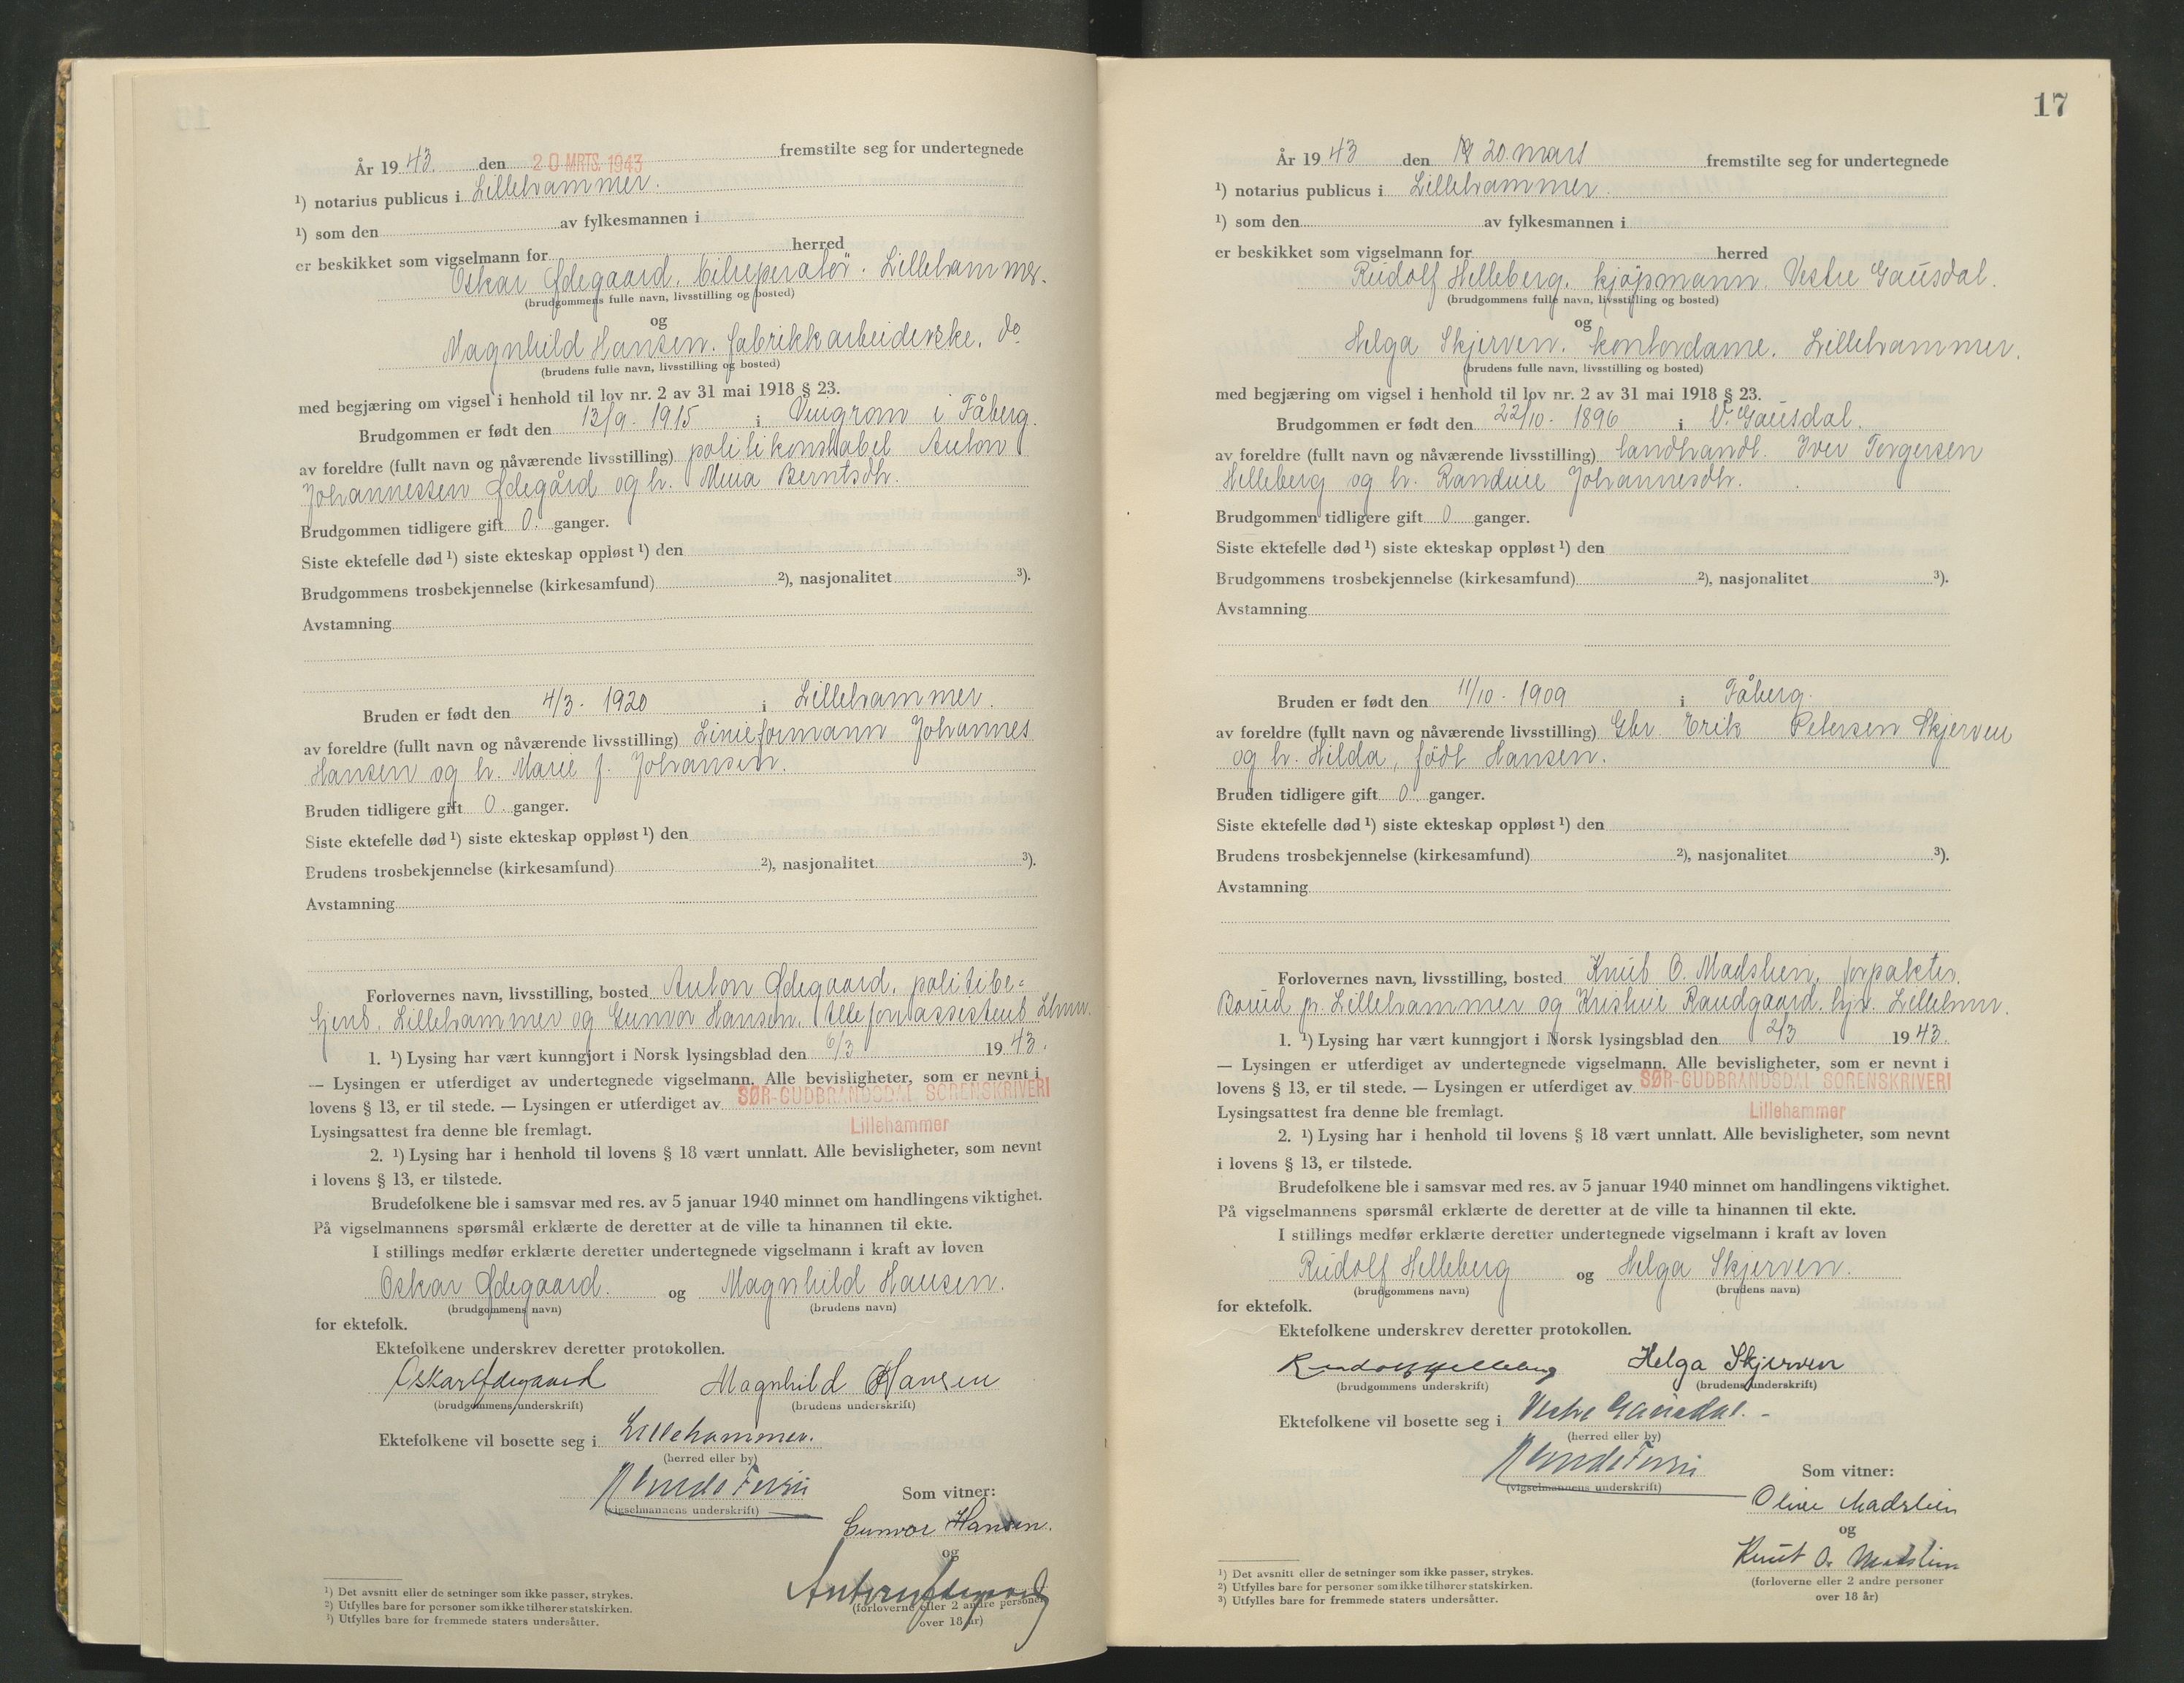 År 19 43. den 20 MRTS. 1943 fremstilte seg for undertegnede
¹) notarius publicus i Lillehammer.
¹) som den av fylkesmannen i
er beskikket som vigselmann for herred
Oskar Ødegaard, bilreperatør. Lillehammer.
(brudgommens fulle navn, livsstilling og bosted)
og
Magnhild Hansen. fabrikkarbeiderske. do
(brudens fulle navn, livsstilling og bosted)
med begjæring om vigsel i henhold til lov nr. 2 av 31 mai 1918 § 23.
Brudgommen er født den 13/9 - 1915 i Vingrom i Fåberg.
av foreldre (fullt navn og nåværende livsstilling) politikonstabel Anton
Johannessen Ødegård og h. Mina Berntsdtr.
Brudgommen tidligere gift 0. ganger.
Siste ektefelle død ¹) siste ekteskap oppløst ¹) den
Brudgommens trosbekjennelse (kirkesamfund) ²), nasjonalitet ³).
Avstamning
Bruden er født den 4/3 - 1920 i Lillehammer.
av foreldre (fullt navn og nåværende livsstilling) Linieformann Johannes
Hansen og h. Marie f. Johansen.
Bruden tidligere gift 0. ganger.
Siste ektefelle død ¹) siste ekteskap oppløst ¹) den
Brudens trosbekjennelse (kirkesamfund) ²), nasjonalitet ³).
Avstamning
Forlovernes navn, livsstilling, bosted Anton Ødegaard, politibe-
tjent, Lillehammer og Gunvor Hansen, telefonassistent Lhmr.
1. ¹) Lysing har vært kunngjort i Norsk lysingsblad den 6/3 19 43.
— Lysingen er utferdiget av undertegnede vigselmann. Alle bevisligheter, som er nevnt i
lovens § 13, er til stede. — Lysingen er utferdiget av SØR-GUDBRANDSDAL SORENSKRIVERI
Lysingsattest fra denne ble fremlagt. Lillehammer
2. ¹) Lysing har i henhold til lovens § 18 vært unnlatt. Alle bevisligheter, som nevnt
i lovens § 13, er tilstede.
Brudefolkene ble i samsvar med res. av 5 januar 1940 minnet om handlingens viktighet.
På vigselmannens spørsmål erklærte de deretter at de ville ta hinannen til ekte.
I stillings medfør erklærte deretter undertegnede vigselmann i kraft av loven
Oskar Ødegaard. og Magnhild Hansen.
(brudgommens navn) (brudens navn)
for ektefolk.
Ektefolkene underskrev deretter protokollen.
Oskar Ødegaard Magnhild Hansen
(brudgommens underskrift) (brudens underskrift)
Ektefolkene vil bosette seg i Lillehammer.
(herred eller by)
(vigselmannens underskrift) Som vitner:
Gunvor Hansen.
og
Anton Ødegaard
(forloverne eller 2 andre personer
over 18 år)
¹) Det avsnitt eller de setninger som ikke passer, strykes.
²) Utfylles bare for personer som ikke tilhører statskirken.
³) Utfylles bare for fremmede staters undersåtter.
17
År 19 43 den 20. mars fremstilte seg for undertegnede
¹) notarius publicus i Lillehammer.
¹) som den av fylkesmannen i
er beskikket som vigselmann for herred
Rudolf Helleberg, kjøpmann. Vestre Gausdal.
(brudgommens fulle navn, livsstilling og bosted)
og
Helga Skjerven. kontordame. Lillehammer.
(brudens fulle navn, livsstilling og bosted)
med begjæring om vigsel i henhold til lov nr. 2 av 31 mai 1918 § 23.
Brudgommen er født den 22/10 - 1896 i V. Gausdal.
av foreldre (fullt navn og nåværende livsstilling) landhandl. Iver Torgersen
Helleberg og h. Randine Johannesdtr.
Brudgommen tidligere gift 0 ganger.
Siste ektefelle død ¹) siste ekteskap oppløst ¹) den
Brudgommens trosbekjennelse (kirkesamfund) ²), nasjonalitet ³).
Avstamning
Bruden er født den 11/10 - 1909 i Fåberg.
av foreldre (fullt navn og nåværende livsstilling) Gbr. Erik Petersen Skjerven
og h. Hilda, født Hansen.
Bruden tidligere gift 0. ganger.
Siste ektefelle død ¹) siste ekteskap oppløst ¹) den
Brudens trosbekjennelse (kirkesamfund) ²), nasjonalitet ³).
Avstamning
Forlovernes navn, livsstilling, bosted Knut O. Madslien, forpakter.
pr. Lillehammer og Kristine Randgaard. hjv. Lillehmr.
1. ¹) Lysing har vært kunngjort i Norsk lysingsblad den 2/3 19 43.
— Lysingen er utferdiget av undertegnede vigselmann. Alle bevisligheter, som er nevnt i
lovens § 13, er til stede. — Lysingen er utferdiget av SØR-GUDBRANDSDAL SORENSKRIVERI
Lysingsattest fra denne ble fremlagt. Lillehammer
2. ¹) Lysing har i henhold til lovens § 18 vært unnlatt. Alle bevisligheter, som nevnt
i lovens § 13, er tilstede.
Brudefolkene ble i samsvar med res. av 5 januar 1940 minnet om handlingens viktighet.
På vigselmannens spørsmål erklærte de deretter at de ville ta hinannen til ekte.
I stillings medfør erklærte deretter undertegnede vigselmann i kraft av loven
Rudolf Helleberg og Helga Skjerven.
(brudgommens navn) (brudens navn)
for ektefolk.
Ektefolkene underskrev deretter protokollen.
Rudolf Helleberg Helga Skjerven
(brudgommens underskrift) (brudens underskrift)
Ektefolkene vil bosette seg i Vestre Gausdal. -
(herred eller by)
(vigselmannens underskrift) Som vitner:
Oline Madslien
og
Knut O. Madslien
(forloverne eller 2 andre personer
over 18 år)
¹) Det avsnitt eller de setninger som ikke passer, strykes.
²) Utfylles bare for personer som ikke tilhører statskirken.
³) Utfylles bare for fremmede staters undersåtter.